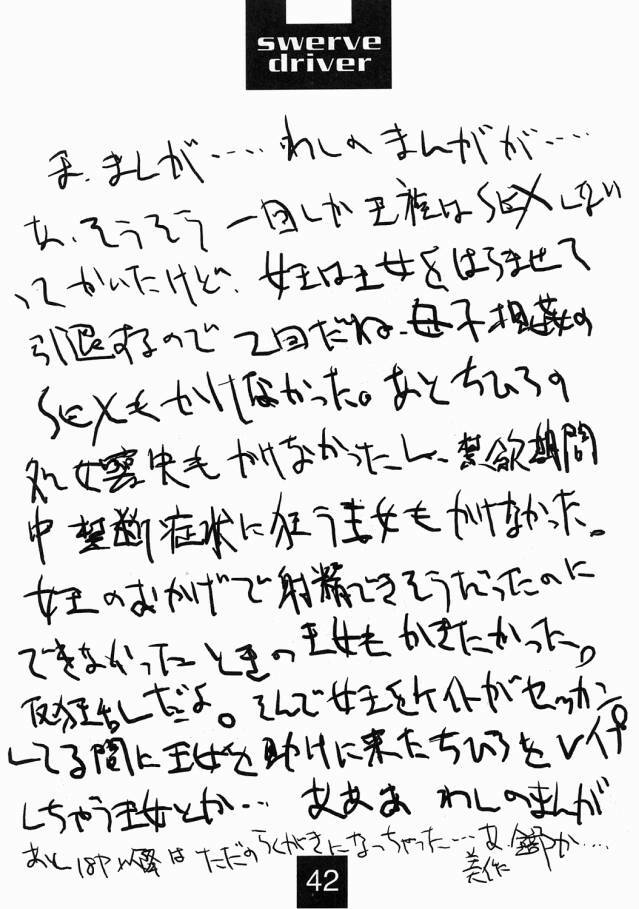 swerve
driver
ま、まんが‥‥わしのまんがが‥‥
あ、そうそう一回しか王族はSEXしない
ってかいたけど、女王は王女をはらませて
引退するので2回だね、母子相姦の
SEXもかけなかった。あとちひろの
処女喪失もかけなかったし、禁欲期間
中禁断症状に狂う王女もかけなかった。
女王のおかげで射精できそうだったのに
できなかったときの王女もかきたかった。
だよ。そんで女王をケイトがセッカン
してる間に王女を助けに来たちひろをレイプ
しちゃう王女とか… あああ わしのまんが
あと 以降はただのらくがきになっちゃった…あ、全部か‥‥
美作
42